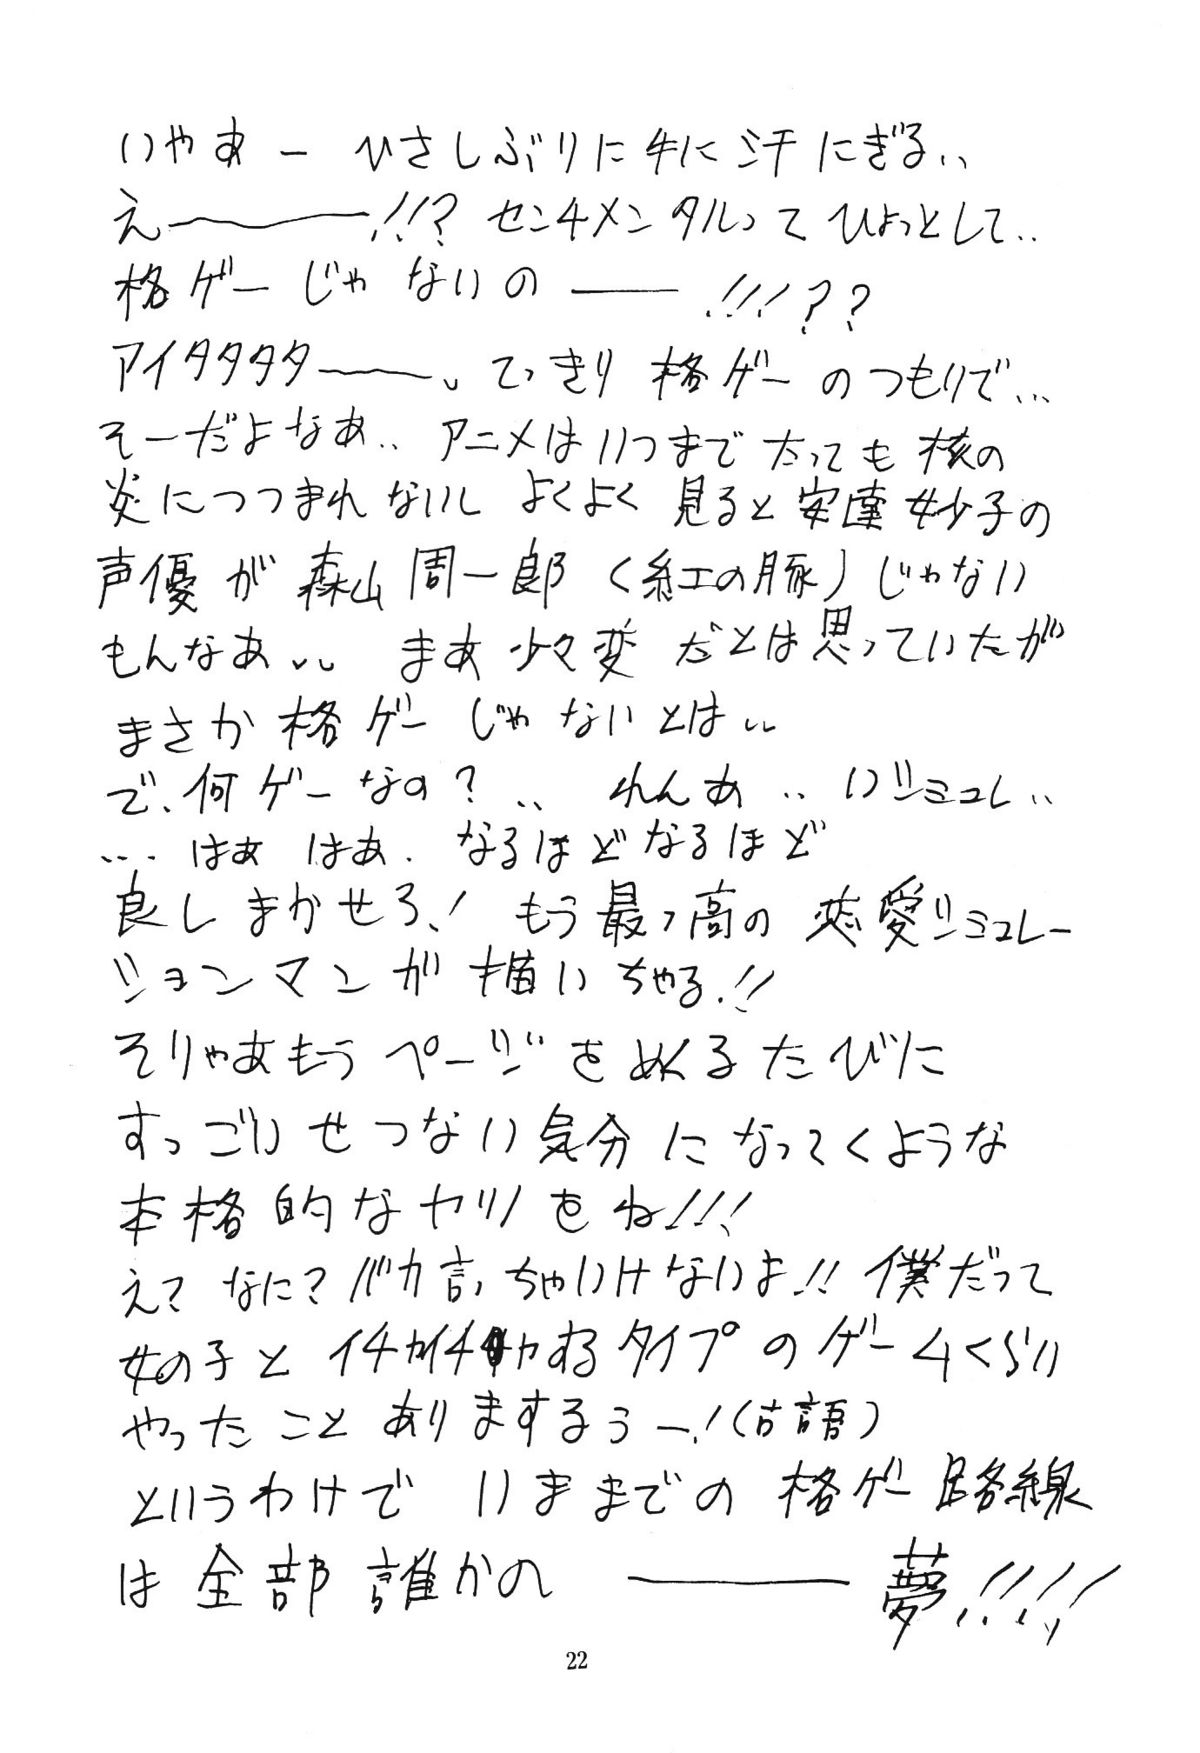 いやあー ひさしぶりに手に汗にぎる、、
え———!!? センチメンタルって ひょっとして..
格ゲーじゃないの——!!!??
アイタタタタ——、てっきり 格ゲーのつもりで...
そーだよなあ.. アニメはいつまでたっても核の
炎につつまれないし よくよく見ると安達妙子の
声優が森山周一郎(紅の豚)じゃない
もんなあ、、 まあ少々変だとは思っていたが
まさか格ゲーじゃないとは、、
で、何ゲーなの?.. れんあ..いシミュレ..
... はあ はあ. なるほどなるほど
良しまかせろ! もう最っ高の恋愛シミュレー
ションマンガ描いちゃる!!
そりゃあもうページをめくるたびに
すっごいせつない気分になってくような
本格的なヤツをね!!!
え?なに?バカ言っちゃいけないよ!! 僕だって
女の子とイチャイチャするタイプのゲームくらい
やったことありまするぅー!(古語)
というわけで いままでの格ゲー路線
は全部誰かの ———夢!!!!
22